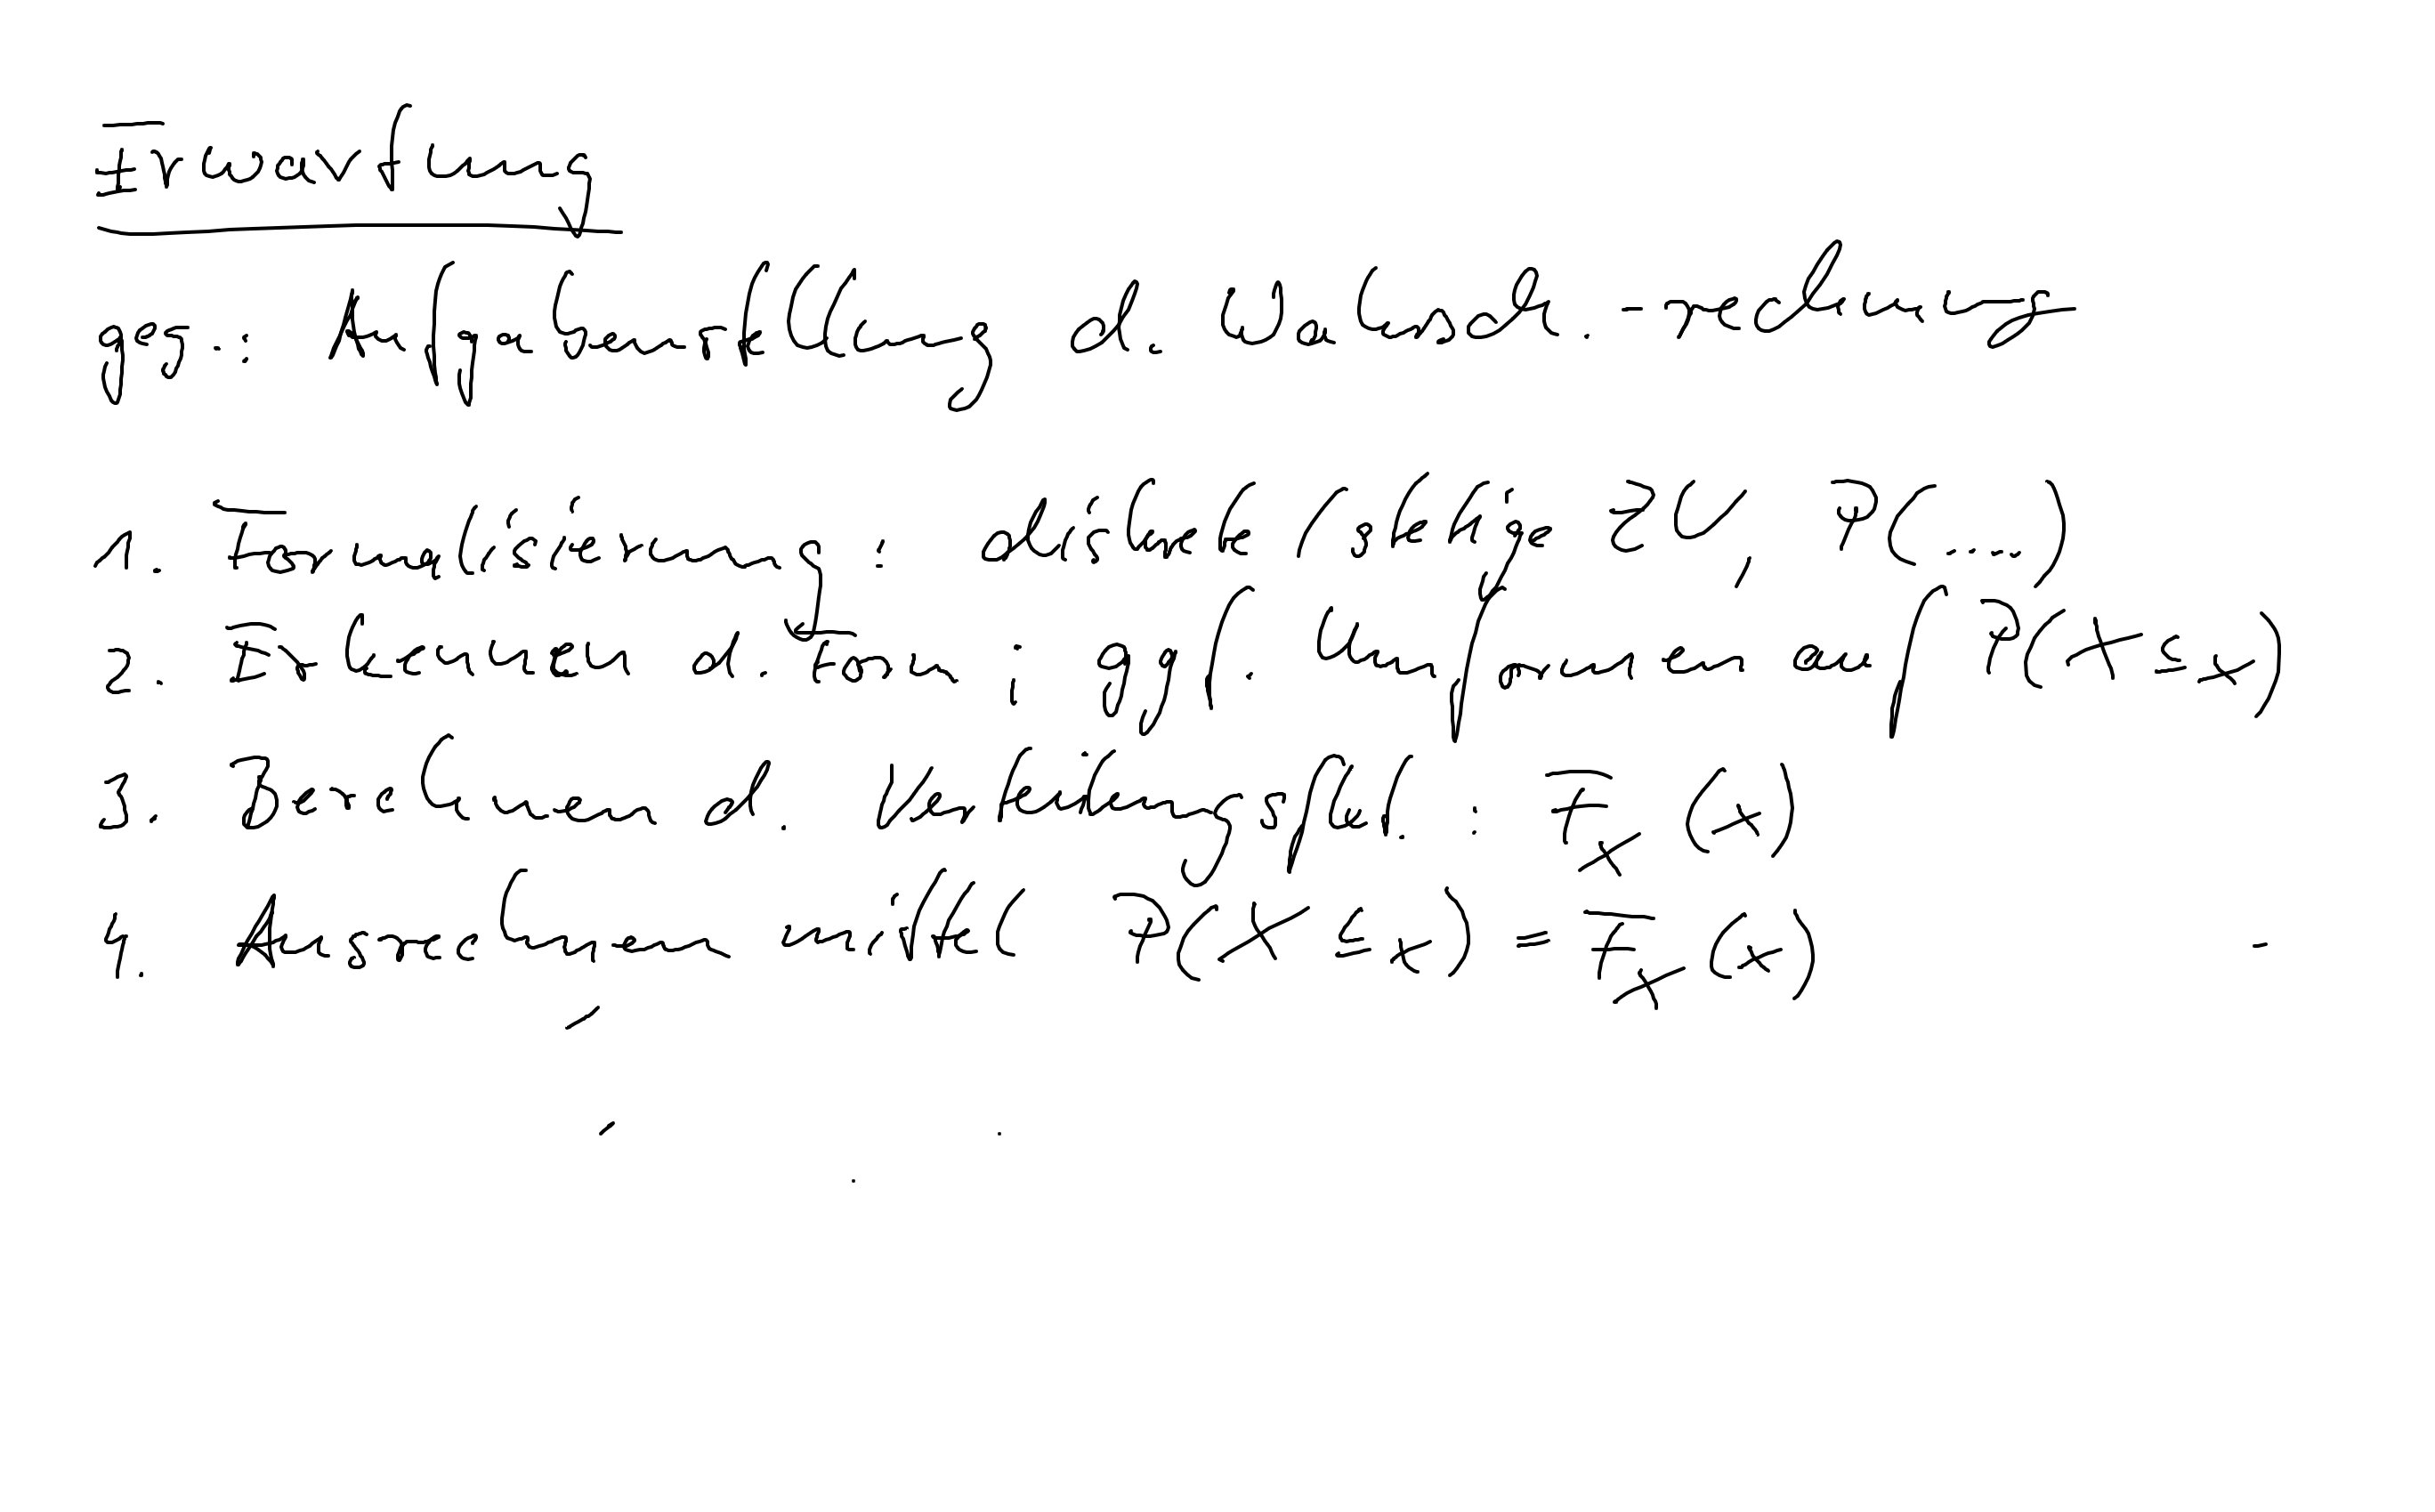 Erwartung
ges.: Aufgabenstellung d. Wahrsch.-rechnung
1. Formalisierung: diskret/stetige ZV, P(...)
2. Erkennen d. Form; ggf. Umformen auf P(X ≤ x)
3. Berechnen d. Verteilungsfkt.: F_X (x)
4. Ausrechnen mittels P(X ≤ x) = F_X (x)